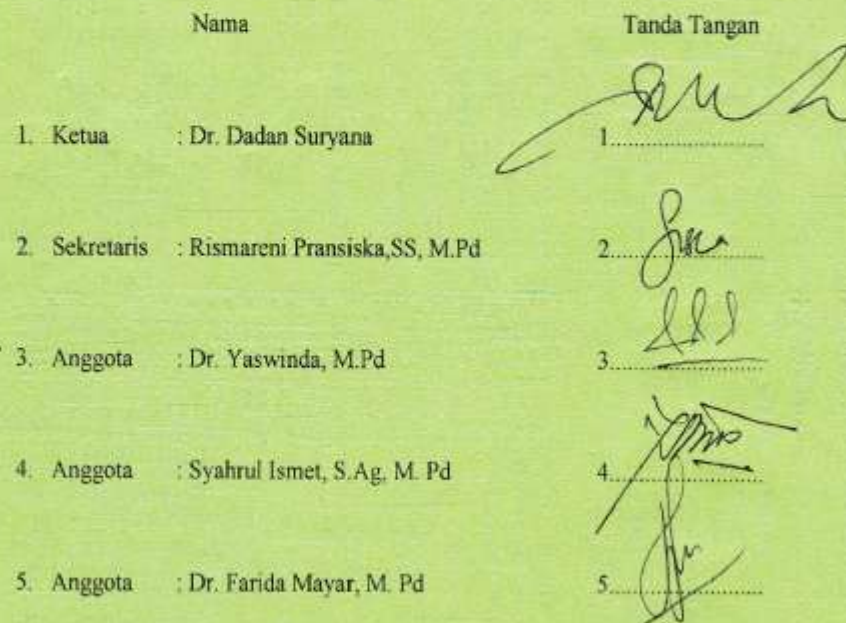 Nama Tanda Tangan
1. Ketua : Dr. Dadan Suryana 1.....................
2. Sekretaris : Rismareni Pransiska,SS, M.Pd 2.....................
3. Anggota : Dr. Yaswinda, M.Pd 3.....................
4. Anggota : Syahrul Ismet, S.Ag, M. Pd 4.....................
5. Anggota : Dr. Farida Mayar, M. Pd 5.....................